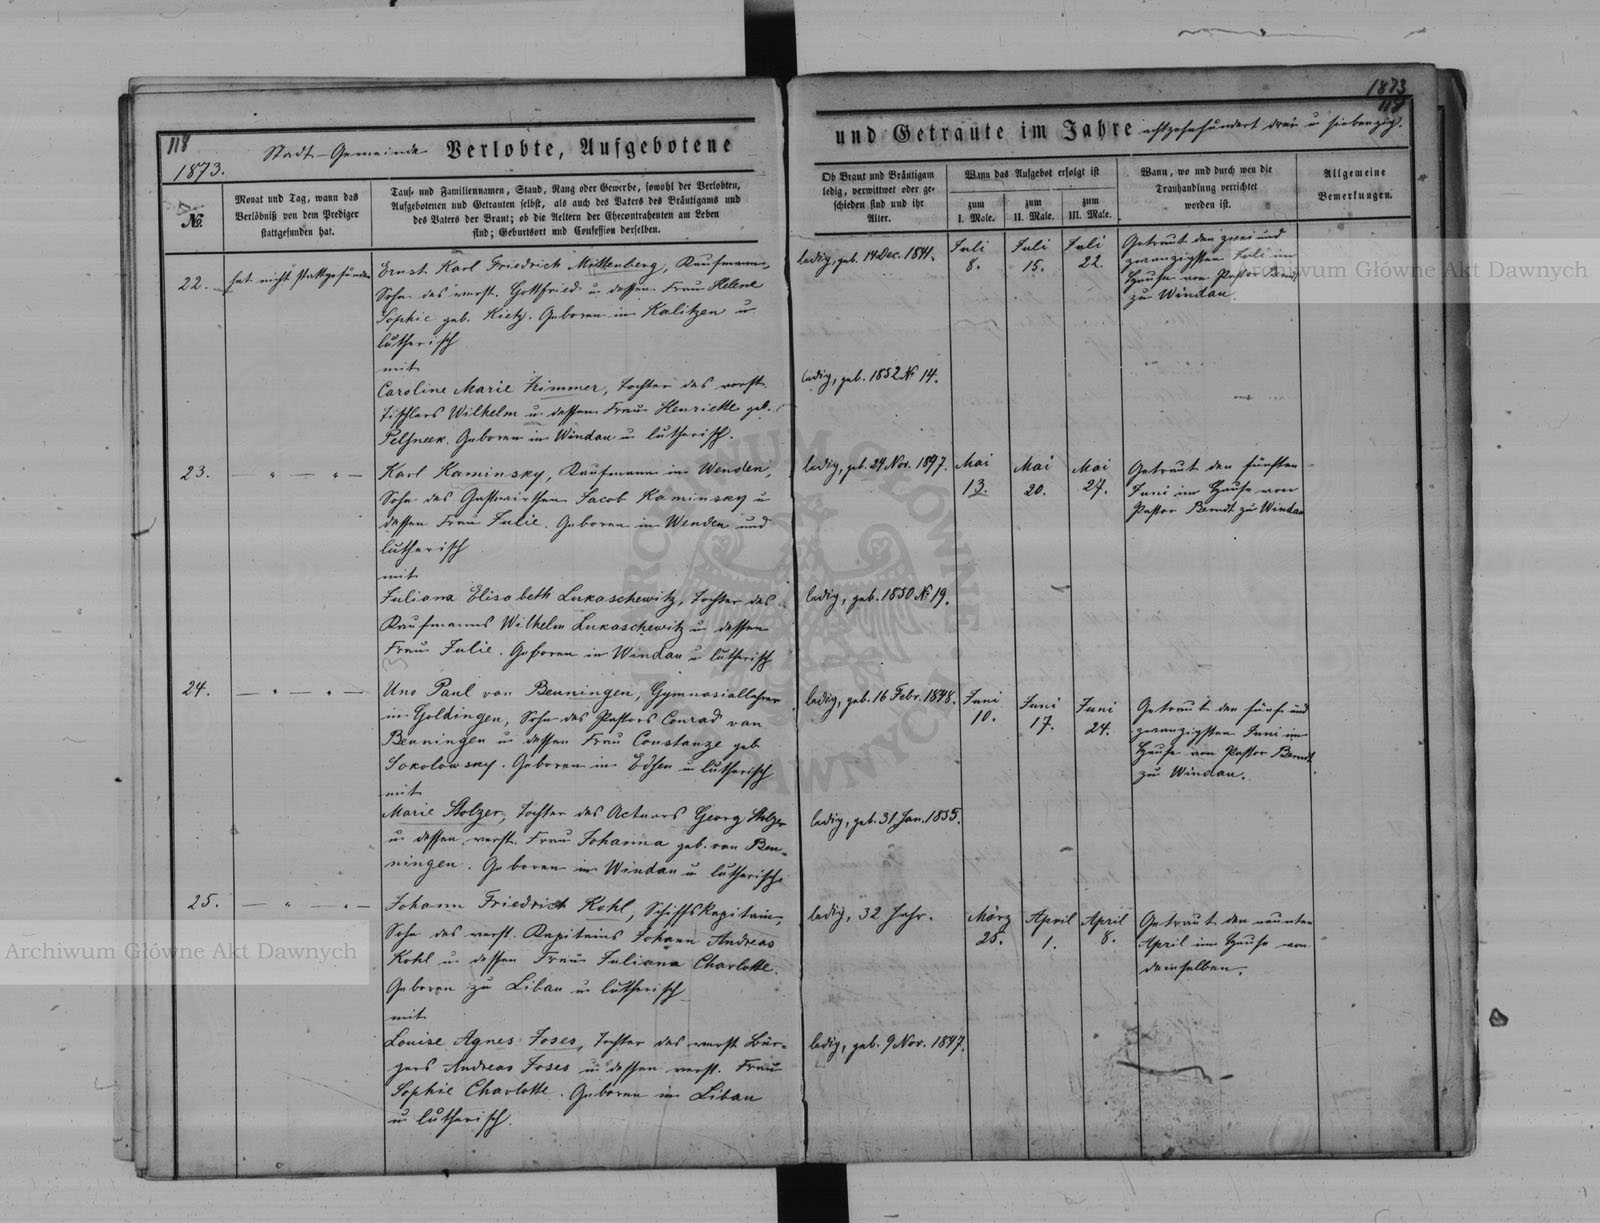 1873
118
118
1873.
Stadt-Gemeinde Verlobte, Aufgebotene
und Getraute im Jahre achtzehnhundert drei u siebenzig.
№.
Monat und Tag, wann das
Verlöbniß von dem Prediger
stattgefunden hat.
Tauf- und Familiennamen, Stand, Rang oder Gewerbe, sowohl der Verlobten,
Aufgebotenen und Getrauten selbst, als auch des Vaters des Bräutigams und
des Vaters der Braut; ob die Aeltern der Ehecontrahenten am Leben
sind; Geburtsort und Confession derselben.
Ob Braut und Bräutigam
ledig, verwittwet oder ge-
schieden sind und ihr
Alter.
Wann das Aufgebot erfolgt ist
zum
I. Male.
zum
II. Male.
zum
III. Male.
Wann, wo und durch wen die
Trauhandlung verrichtet
worden ist.
Allgemeine
Bemerkungen.
22.
hat nicht stattgefunden
Ernst Karl Friedrich Mittenberg, Kaufmann,
Sohn des verst. Gottfried u dessen Frau Helene
Sophie geb. Kietz. Geboren in Kalitzen u
lutherisch
mit
Caroline Marie Zimmer, Tochter des verst.
Tischlers Wilhelm u dessen Frau Henriette geb.
Pelsneek. Geboren in Windau u lutherisch.
ledig, geb. 14 Dec. 1841.
ledig, geb. 1852 № 14.
Juli
8.
Juli
15.
Juli
22.
Getraut den zwei und
zwanzigsten Juli im
Hause von Pastor Berndt
zu Windau.
23.
— " — " —
Karl Kaminsky, Kaufmann in Wenden,
Sohn des Gastwirthen Jacob Kaminsky u
dessen Frau Julie. Geboren in Wenden und
lutherisch
mit
Juliana Elisabeth Lukaschewitz, Tochter des
Kaufmanns Wilhelm Lukaschewitz u dessen
Frau Julie. Geboren in Windau u lutherisch
ledig, geb. 29 Nov. 1847.
ledig, geb. 1850 № 19.
Mai
13.
Mai
20.
Mai
27.
Getraut den fünften
Juni im Hause von
Pastor Berndt zu Windau
24.
— " — " —
Uno Paul von Beuningen, Gymnasiallehrer
in Goldingen, Sohn des Pastors Conrad von
Beuningen u dessen Frau Constanze geb.
Sokolowsky. Geboren in Edsen u lutherisch
mit
Marie Stolzer, Tochter des Actuars Georg Stolzer
u dessen verst. Frau Johanna geb. von Beu-
ningen. Geboren in Windau u lutherisch
ledig, geb. 16 Febr. 1848.
ledig, geb. 31 Jan. 1855.
Juni
10.
Juni
17.
Juni
24.
Getraut den fünf und
zwanzigsten Juni im
Hause von Pastor Berndt
zu Windau.
25.
— " — " —
Johann Friedrich Kohl, Schiffskapitain,
Sohn des verst. Kapitains Johann Andreas
Kohl u dessen Frau Juliana Charlotte.
Geboren zu Libau u lutherisch
mit
Louise Agnes Joses, Tochter des verst. Bür-
gers Andreas Joses u dessen verst. Frau
Sophie Charlotte. Geboren in Libau
u lutherisch.
ledig, 32 Jahr.
ledig, geb. 9 Nov. 1847.
März
25.
April
1.
April
8.
Getraut den neunten
April im Hause von
demselben.
Archiwum Główne Akt Dawnych
Archiwum Główne Akt Dawnych
ARCHIWUM GŁÓWNE AKT DAWNYCH